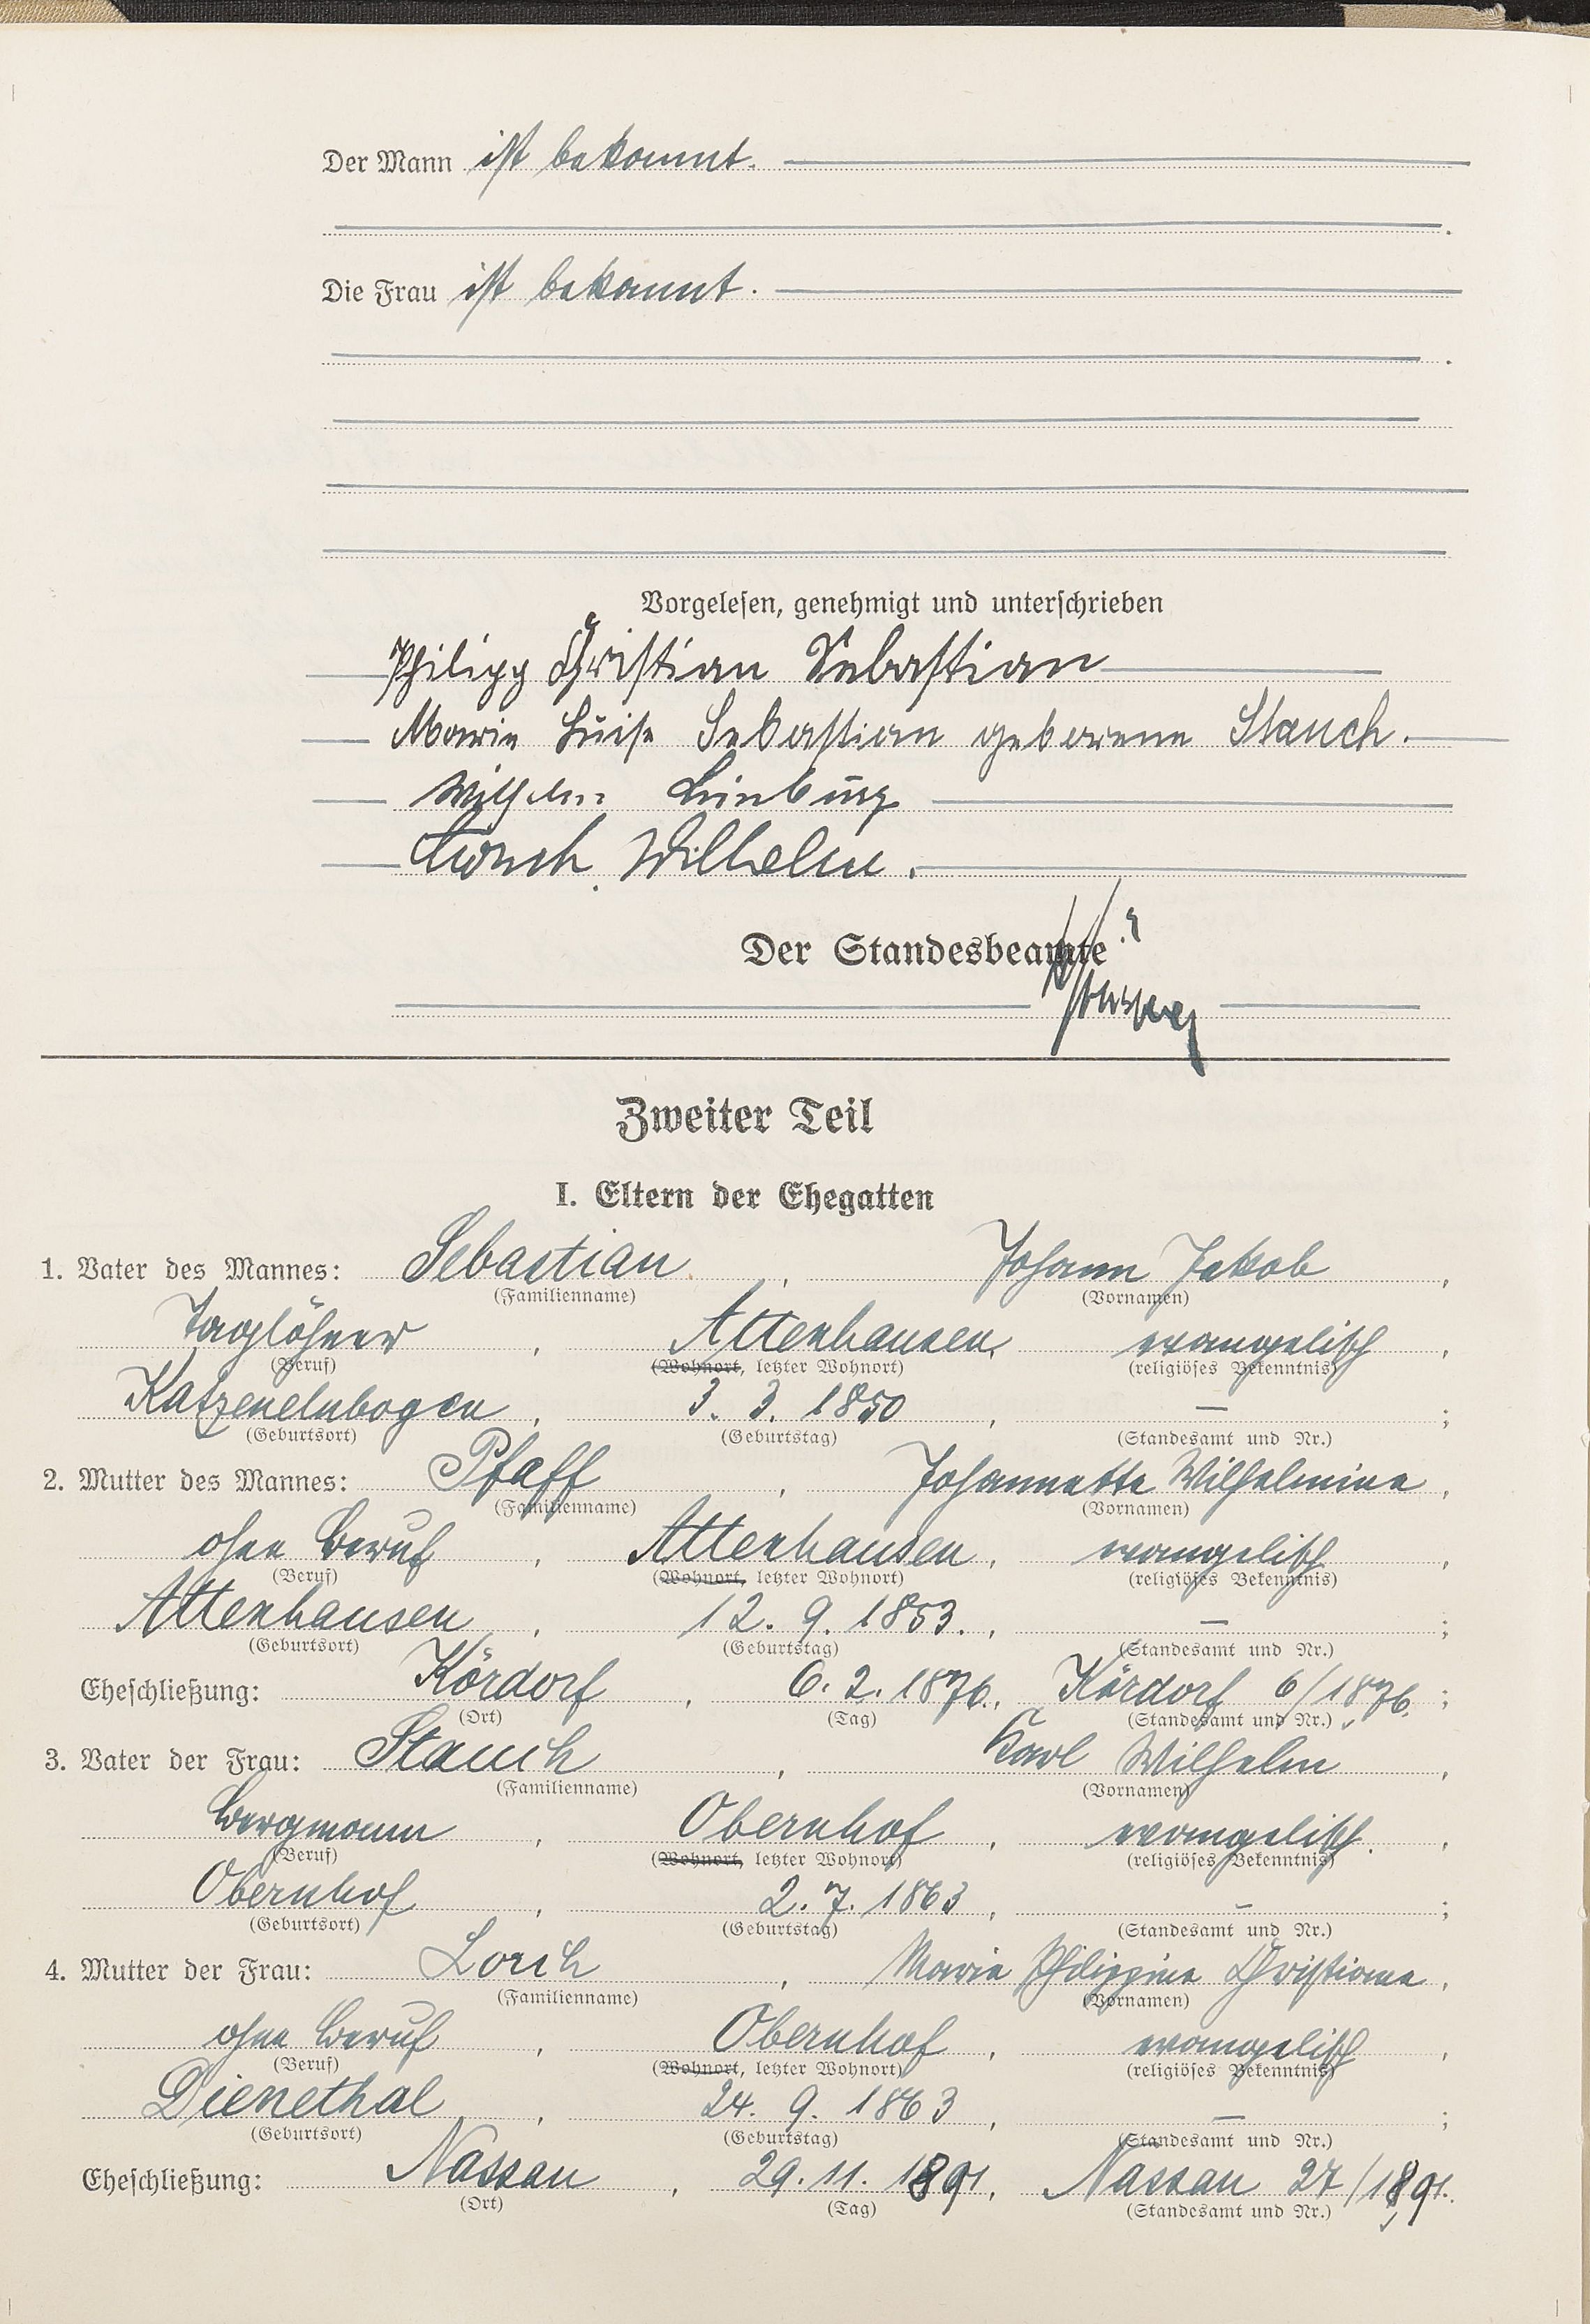 Der Mann ist bekannt.
Die Frau ist bekannt.
Vorgelesen, genehmigt und unterschrieben
Philipp Christian Sebastian
Marie Luise Sebastian geborene Stauch.
Wilhelm Limburg
Wilhelm.
Der Standesbeamte
Zweiter Teil
I. Eltern der Ehegatten
1. Vater des Mannes: Sebastian, Johann Jakob,
(Familienname) (Vornamen)
Taglöhner, Attenhausen, evangelisch,
(Beruf) (Wohnort, letzter Wohnort) (religiöses Bekenntnis)
Katzenelnbogen, 3. 3. 1850, — ;
(Geburtsort) (Geburtstag) (Standesamt und Nr.)
2. Mutter des Mannes: Pfaff, Johannette Wilhelmine,
(Familienname) (Vornamen)
ohne Beruf, Attenhausen, evangelisch,
(Beruf) (Wohnort, letzter Wohnort) (religiöses Bekenntnis)
Attenhausen, 12. 9. 1853., — ;
(Geburtsort) (Geburtstag) (Standesamt und Nr.)
Eheschließung: Kördorf, 6. 2. 1876., Kördorf 6/1876. ;
(Ort) (Tag) (Standesamt und Nr.)
3. Vater der Frau: Stauch, Karl Wilhelm,
(Familienname) (Vornamen)
Bergmann, Obernhof, evangelisch.,
(Beruf) (Wohnort, letzter Wohnort) (religiöses Bekenntnis)
Obernhof, 2. 7. 1863, – ;
(Geburtsort) (Geburtstag) (Standesamt und Nr.)
4. Mutter der Frau: Lorch, Marie Philippine Christiane,
(Familienname) (Vornamen)
ohne Beruf, Obernhof, evangelisch,
(Beruf) (Wohnort, letzter Wohnort) (religiöses Bekenntnis)
Dienethal, 24. 9. 1863, — ;
(Geburtsort) (Geburtstag) (Standesamt und Nr.)
Eheschließung: Nassau, 29. 11. 1891, Nassau 27/1891.
(Ort) (Tag) (Standesamt und Nr.)